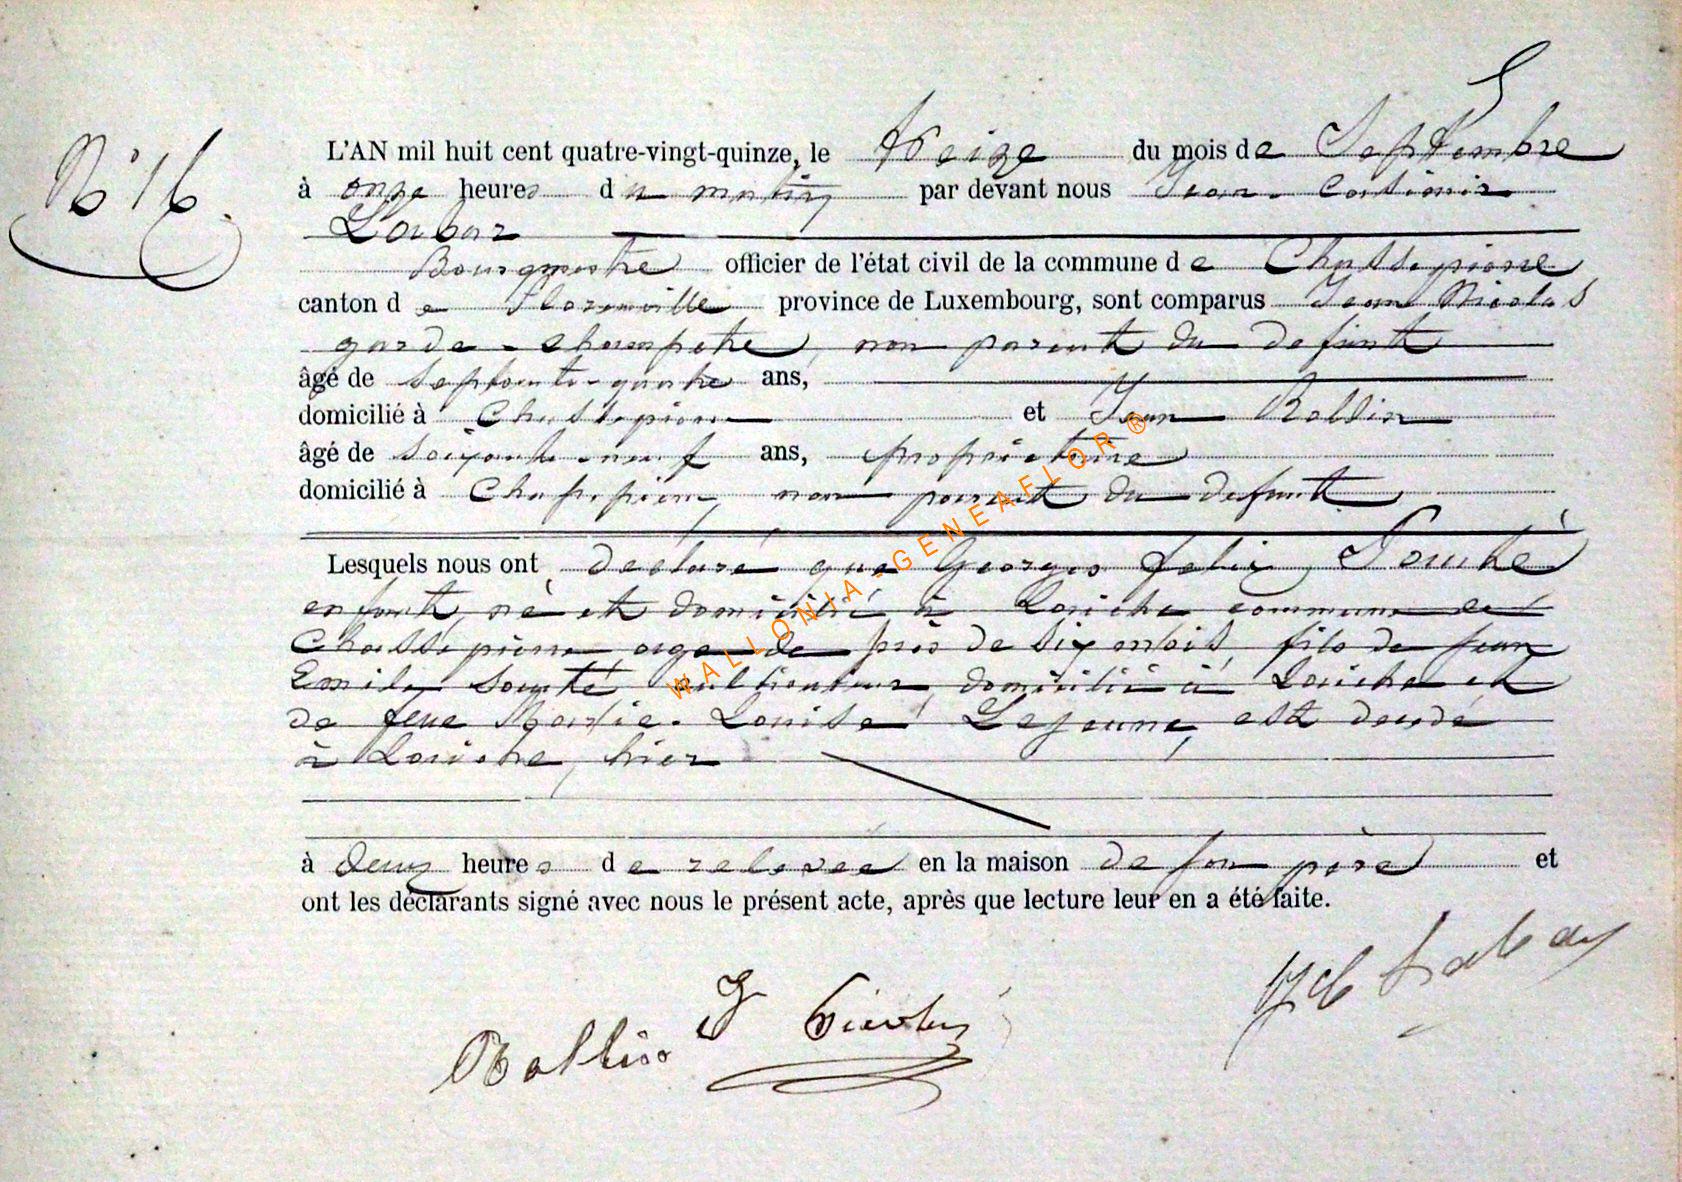 N° 16.
L'AN mil huit cent quatre-vingt-quinze, le treize du mois de Septembre
à onze heures du matin par devant nous Jean-Casimir
Labar
Bourgmestre officier de l'état civil de la commune de Chassepierre
canton de Florenville province de Luxembourg, sont comparus Jean Nicolas
garde-champêtre, non parent du défunt
âgé de septante-quatre ans,
domicilié à Chassepierre et Jean Rollin
âgé de soixante-neuf ans, propriétaire
domicilié à Chassepierre, non parent du défunt
Lesquels nous ont déclaré que Georges Felix
enfant, né et domicilié à Laiche commune de
Chassepierre, age de près de six mois, fils de Jean
Emile cultivateur, domicilié à Laiche et
de feue Marie-Louise Lejeune, est décédé
à Laiche, hier
à deux heures de relevée en la maison de son père et
ont les déclarants signé avec nous le présent acte, après que lecture leur en a été faite.
JC Labar
J Nicolas
Rollin
WALLONIA-GENEAFLOR®